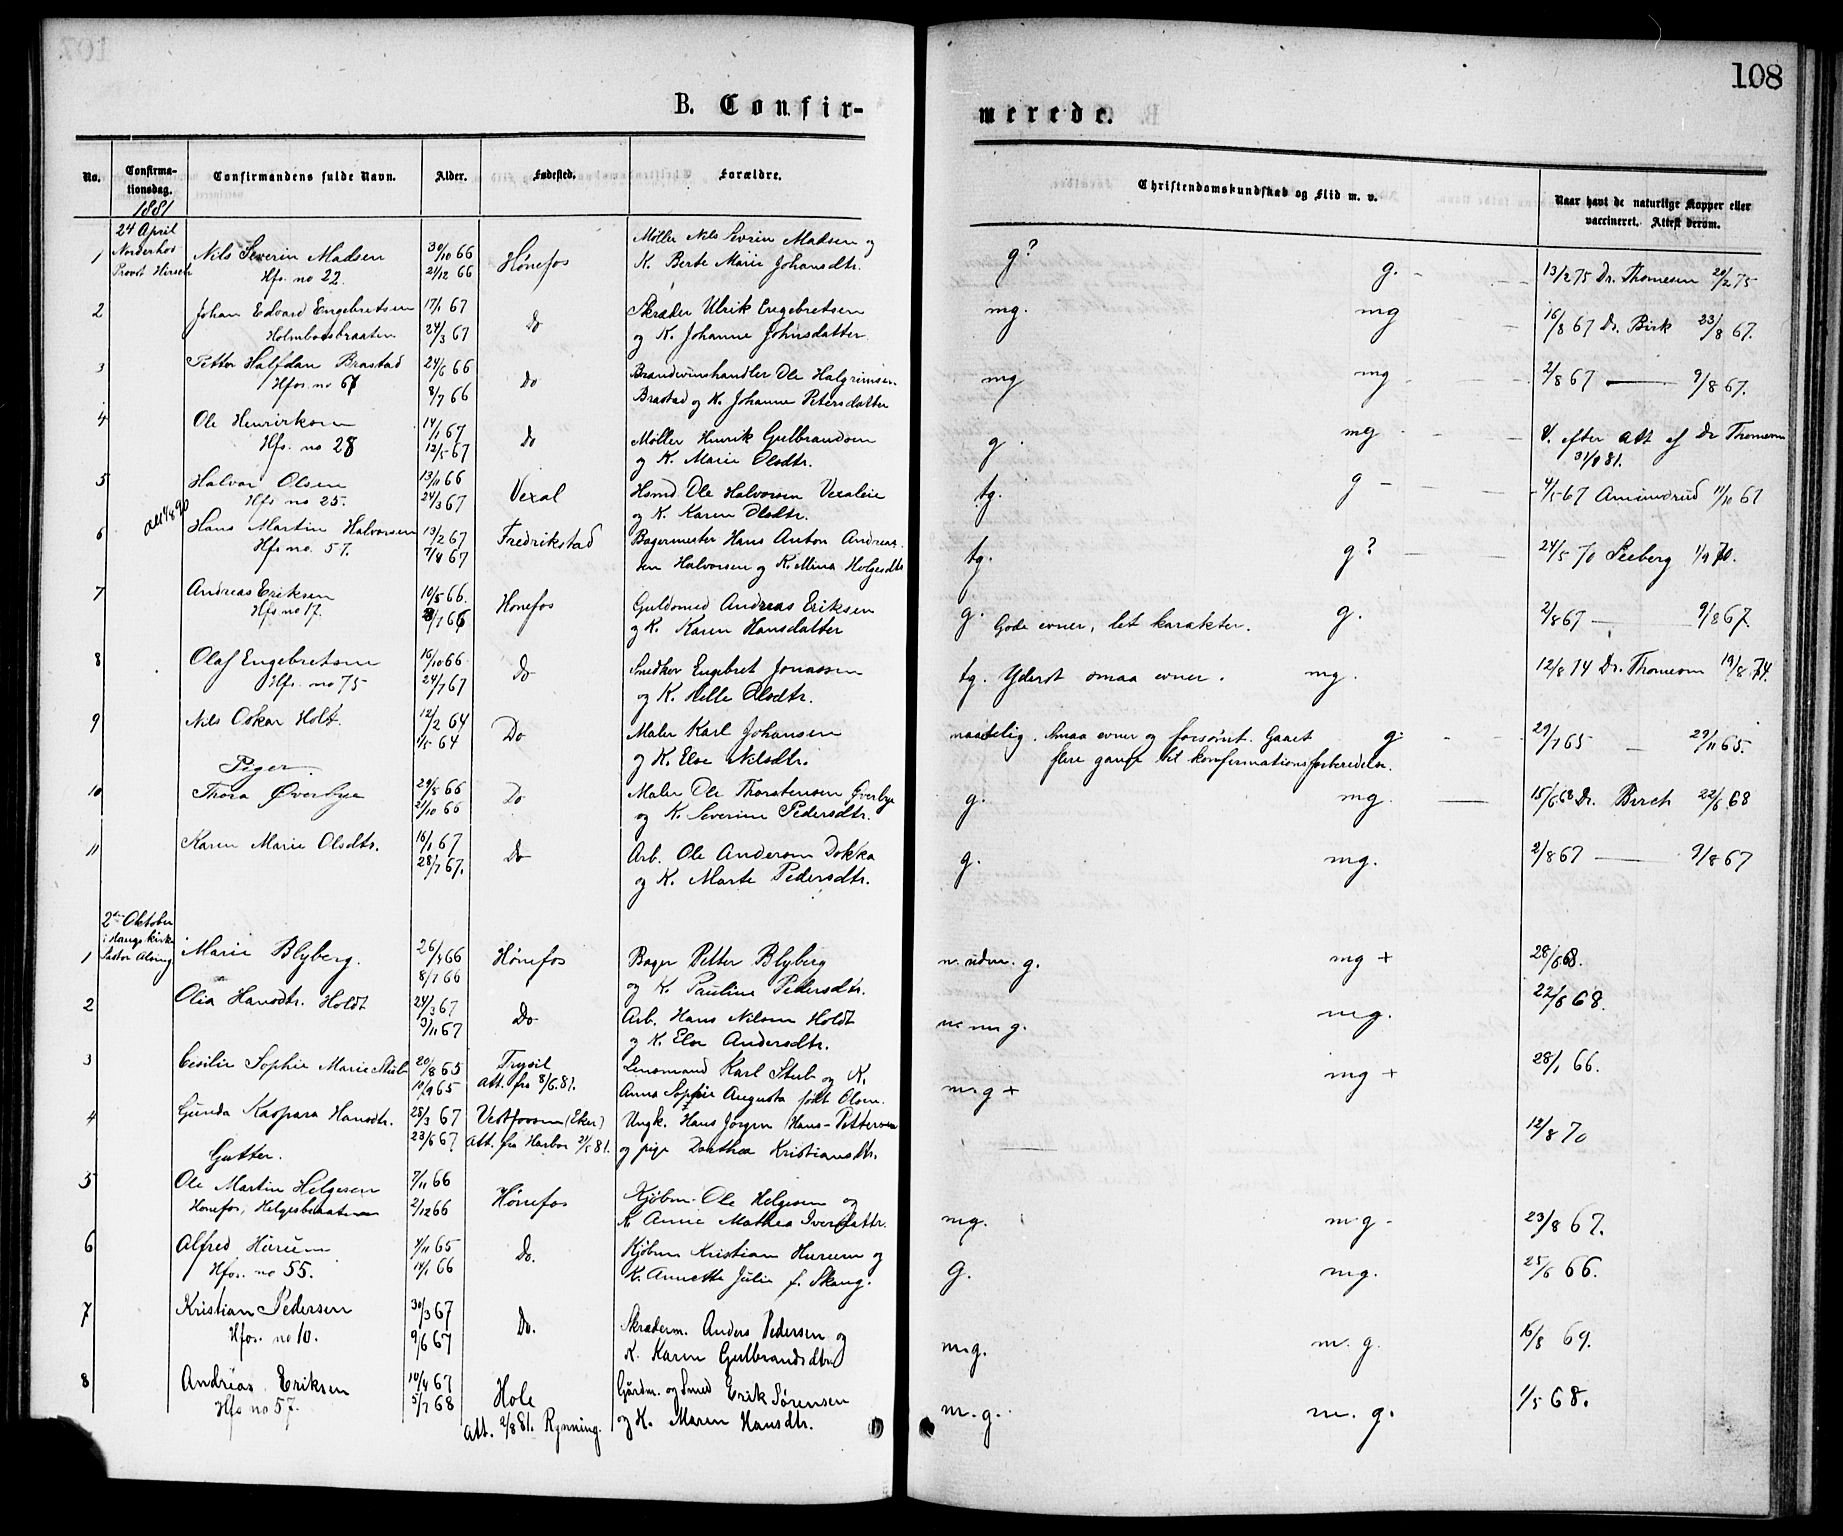 108
B. Confir-
merede.
No.
Confirma-
tionsdag.
Confirmandens fulde Navn.
Alder.
Fødested.
Forældre.
Christendomskundskab og Flid m. v.
Naar havt de naturlige Kopper eller
vaccineret. Attest derom.
1881
24 April
Norderhov
Provst Hirsch
1 Nils Severin Madsen 30/10 66 Hønefos Møller Nils Sevrin Madsen og g? g. 13/2 75 Dr. Thomesen 20/2 75
Hfs. no 22. 21/12 66 K. Berte Marie Johansdtr.
2 Johan Edvard Engebretsen 17/1 67 Do Skræder Ulrik Engebretsen mg. mg 16/8 67 Dr. Birk 23/8 67.
Holmbosbraaten 24/3 67 og K. Johanne Johnsdatter
3 Petter Halfdan Brastad 24/6 66 Do Brændevinshandler Ole Halgrimsen mg mg 2/8 67 — 9/8 67.
Hfos. no 67 8/7 66 Brastad og K. Johanne Petersdatter
4 Ole Henriksen 14/1 67 Do Møller Henrik Gulbrandsen g. mg V. efter att af Dr Thomesen
Hfs. no 28 12/5 67 og K. Marie Olsdtr. 31/8 81.
5 Halvor Olsen 13/11 66 Vexal Hsmd. Ole Halvorsen Vexaleie tg. g 4/5 67 Amundrud 11/10 67
Hfs no 25. 24/3 67 og K. Karen Olsdtr.
6 Hans Martin Halvorsen 13/2 67 Fredrikstad Bagermester Hans Anton Andrea- tg. g? 24/5 70 Seeberg 1/9 70.
Hfs no. 57. 7/4 67 sen Halvorsen og K. Mina Holgesdtr
7 Andreas Eriksen 10/5 66. Honefos Guldsmed Andreas Eriksen g. Gode evner, let karakter. g. 2/8 67 — 9/8 67.
Hfs no 17. og K. Karen Hansdatter
8 Olaf Engebretsen 16/10 66 Do Snedker Engebret Jonassen tg. Yderst smaa evner. mg. 12/8 74 Dr. Thomesen 19/8 74.
Hfs. no 75 24/7 67 og K. Helle Olsdtr.
9 Nils Oskar Holt. 12/2 64 Do Maler Karl Johansen maadelig. Smaa evner og forsømt. Gaaet g. 29/7 65 — 29/11 65.
1/5 64 og K. Else Nilsdtr. flere gange til konfirmationsforberedelse.
Piger.
10 Thora Øverbye 29/8 66 Do Maler Ole Thorstensen Øverbye g. mg. 15/6 68 Dr. Birch 22/6 68
21/10 66 og K. Severine Pedersdtr.
11 Karen Marie Olsdtr. 16/1 67 Do Arb. Ole Andersen Dokka g. mg. 2/8 67 — 9/8 67
28/7 67. og K. Marte Pedersdtr.
2den Oktober
i Haugs kirke
Pastor
1 Marie Blyberg. Hønefos Bager Petter Blyberg mg + 28/6 68.
8/7 66 og K. Pauline Pedersdtr.
2 Olia Hansdtr. Holdt 24/3 67 Do Arb. Hans Nilsen Holdt mg. 22/6 68.
3/11 67 og K. Else Andersdtr.
3 Cesilie Sophie Marie Stub 20/8 65 Trysil Lensmand Karl Stub og K. m.g + mg + 28/1 66.
10/9 65 Att. fra 8/6. 81. Anna Sophie Augusta født Olsen.
4 Gunda Kaspara Hansdtr. 25/3 67 Vestfossen (Eker) Ungk. Hans Jørgen Hans-Pettersen 12/8 70
23/6 67 og pige Dorthea Kristiansdtr.
Gutter.
5 Ole Martin Helgesen 7/11 66 Hønefos Kjøbm. Ole Helgesen og mg. mg- 23/8 67.
Hønefos, Helgesbraaten 2/12 66 K Anne Mathea Iversdattr.
6 Alfred Hurum 4/11 65 Do. Kjøbm Kristian Hurum og g. mg. 25/6 66.
Hfos. no 55. 14/1 66 K. Annette Julie f. Skaug.
7 Kristian Pedersen 30/3 67 Do. Skræderm. Anders Pedersen og m.g. m. g. 16/8 69.
Hfos. no 10. 9/6 67 K. Karen Gulbrandsdtr
8 Andreas Eriksen 10/4 67 Hole Gårdm. og Smed Erik Sørensen m.g. m. g. 1/5 68.
Hfs no 57. 5/7 68 Att. 2/8 81. Rynning. og K. Maren Hansdtr.